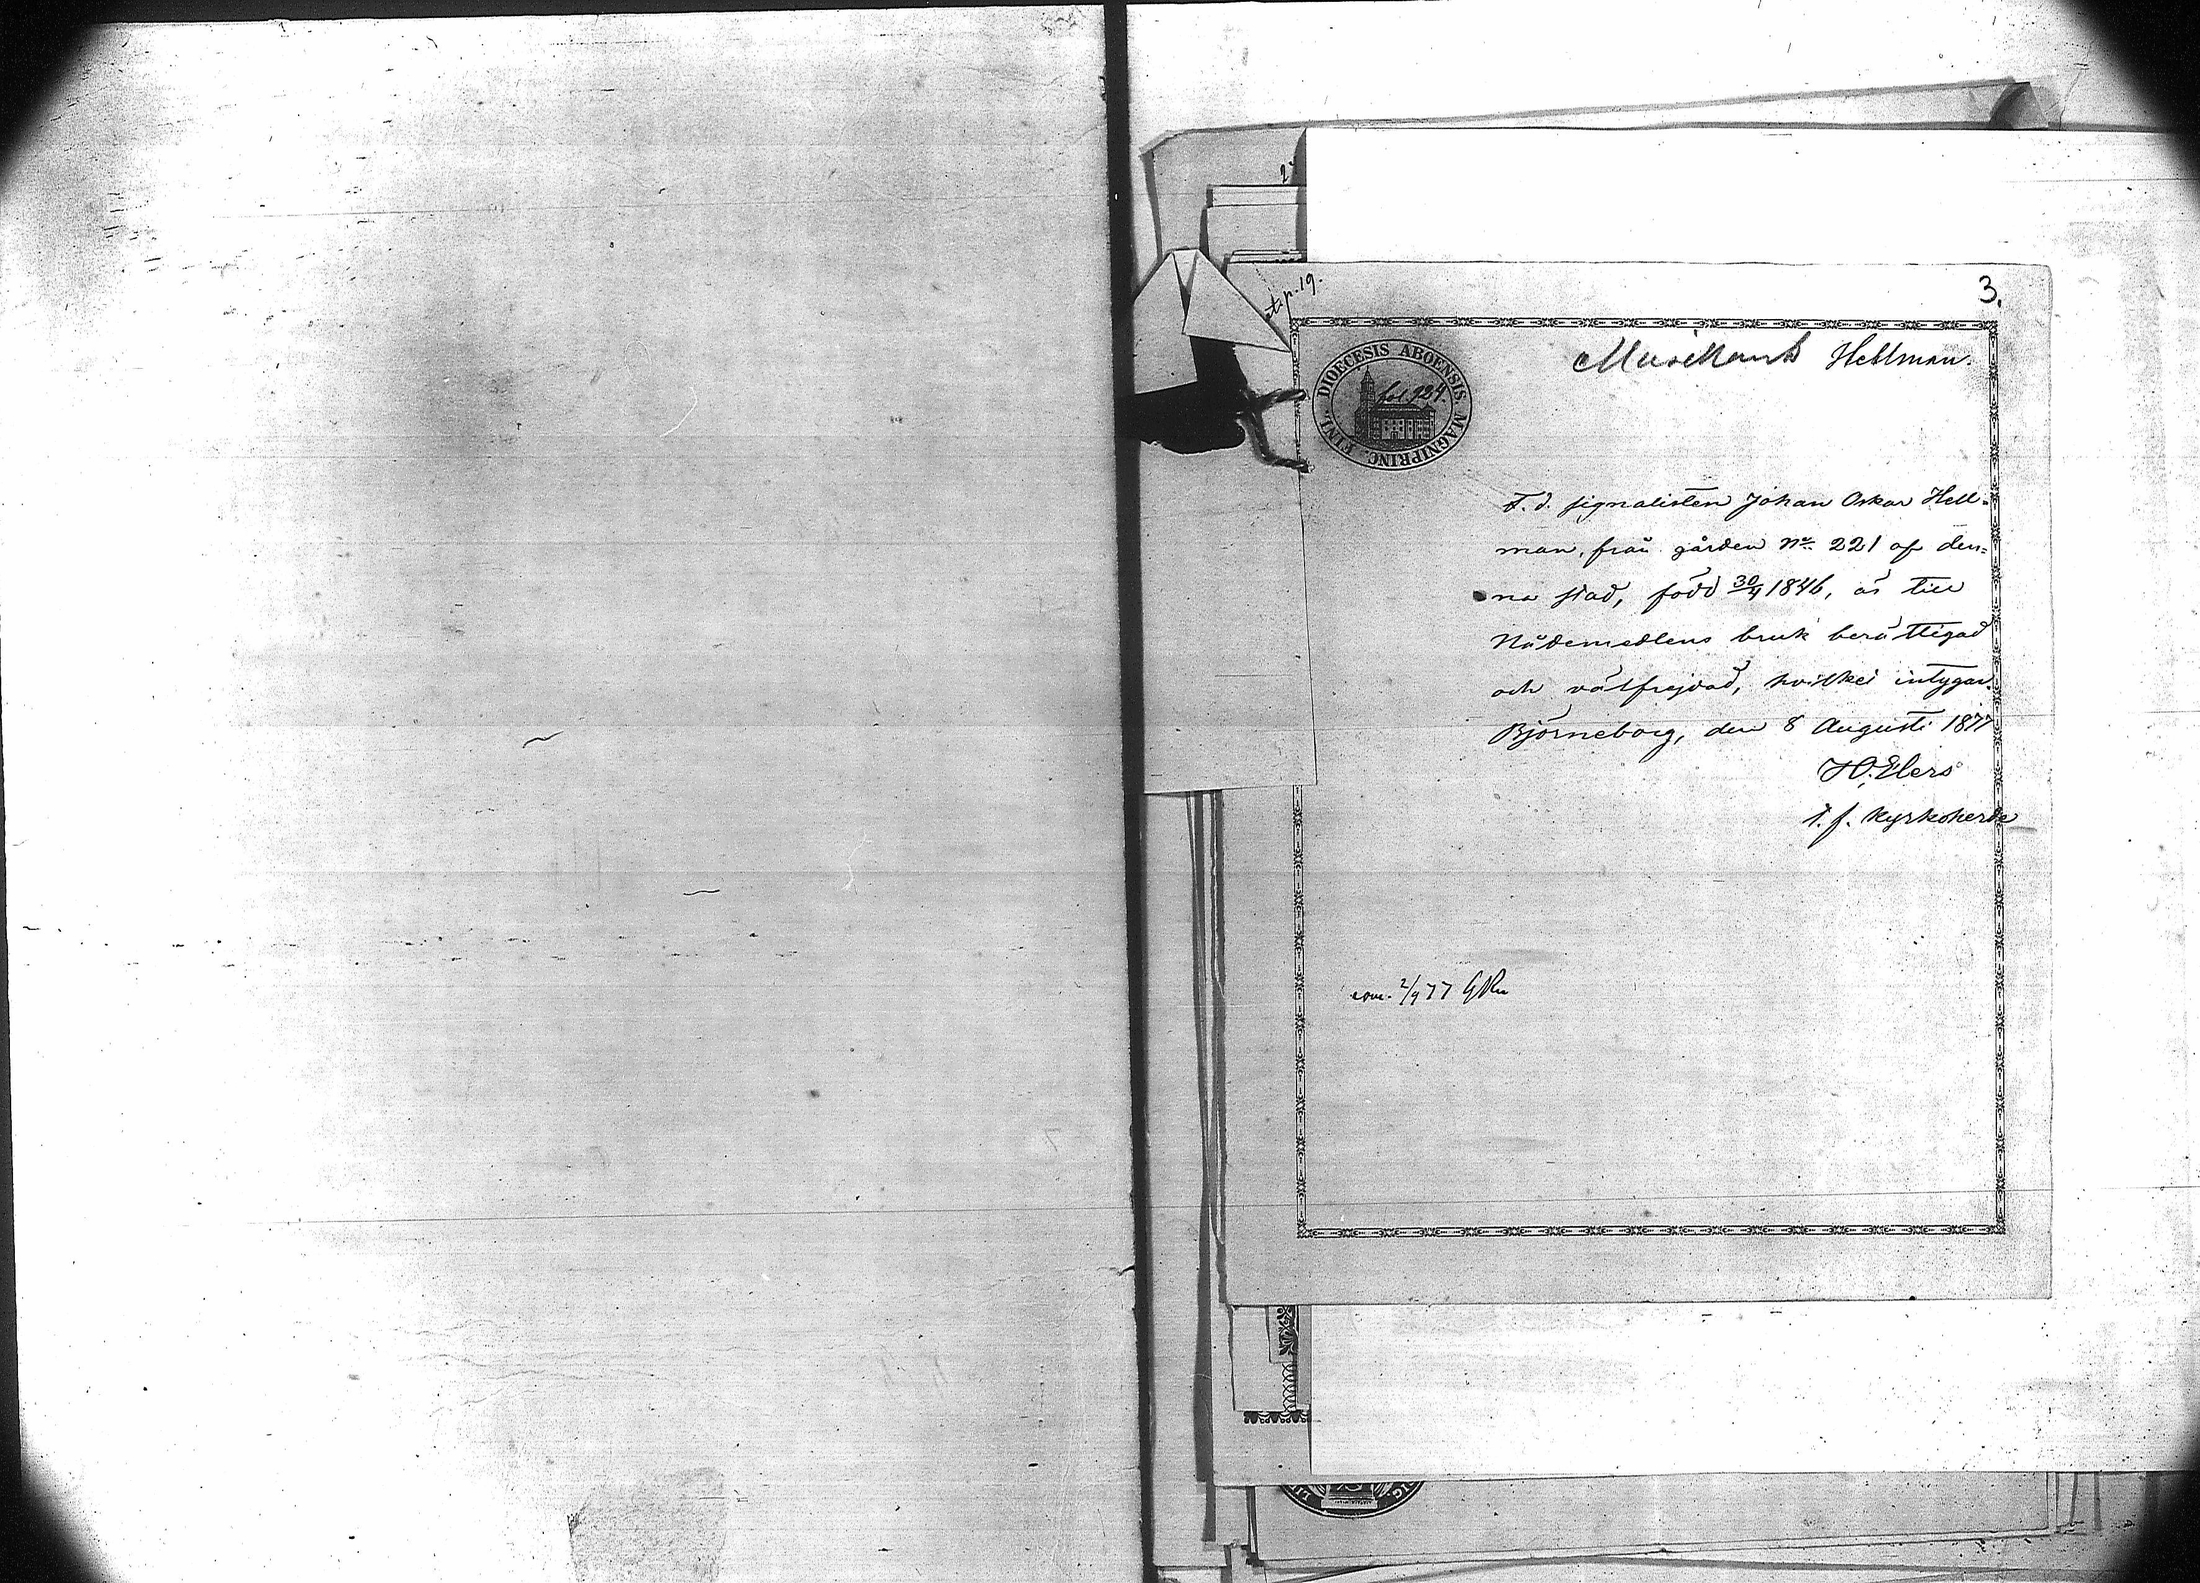 3.
att. p. 19.
Musikant Hellman.
DIOECESIS ABOENSIS MAGNIPRINC. FINL.
fol. 924.
F. d. signalisten Johan Oskar Hell=
man, från gården No. 221 af den=
na stad, född 30/4 1846, är till
Nådemedlens bruk berättigad
och välfrejdad, hvilket intygar.
Björneborg, den 8 Augusti 1877
H. Elers
t. f. Kyrkoherde
2/9 77